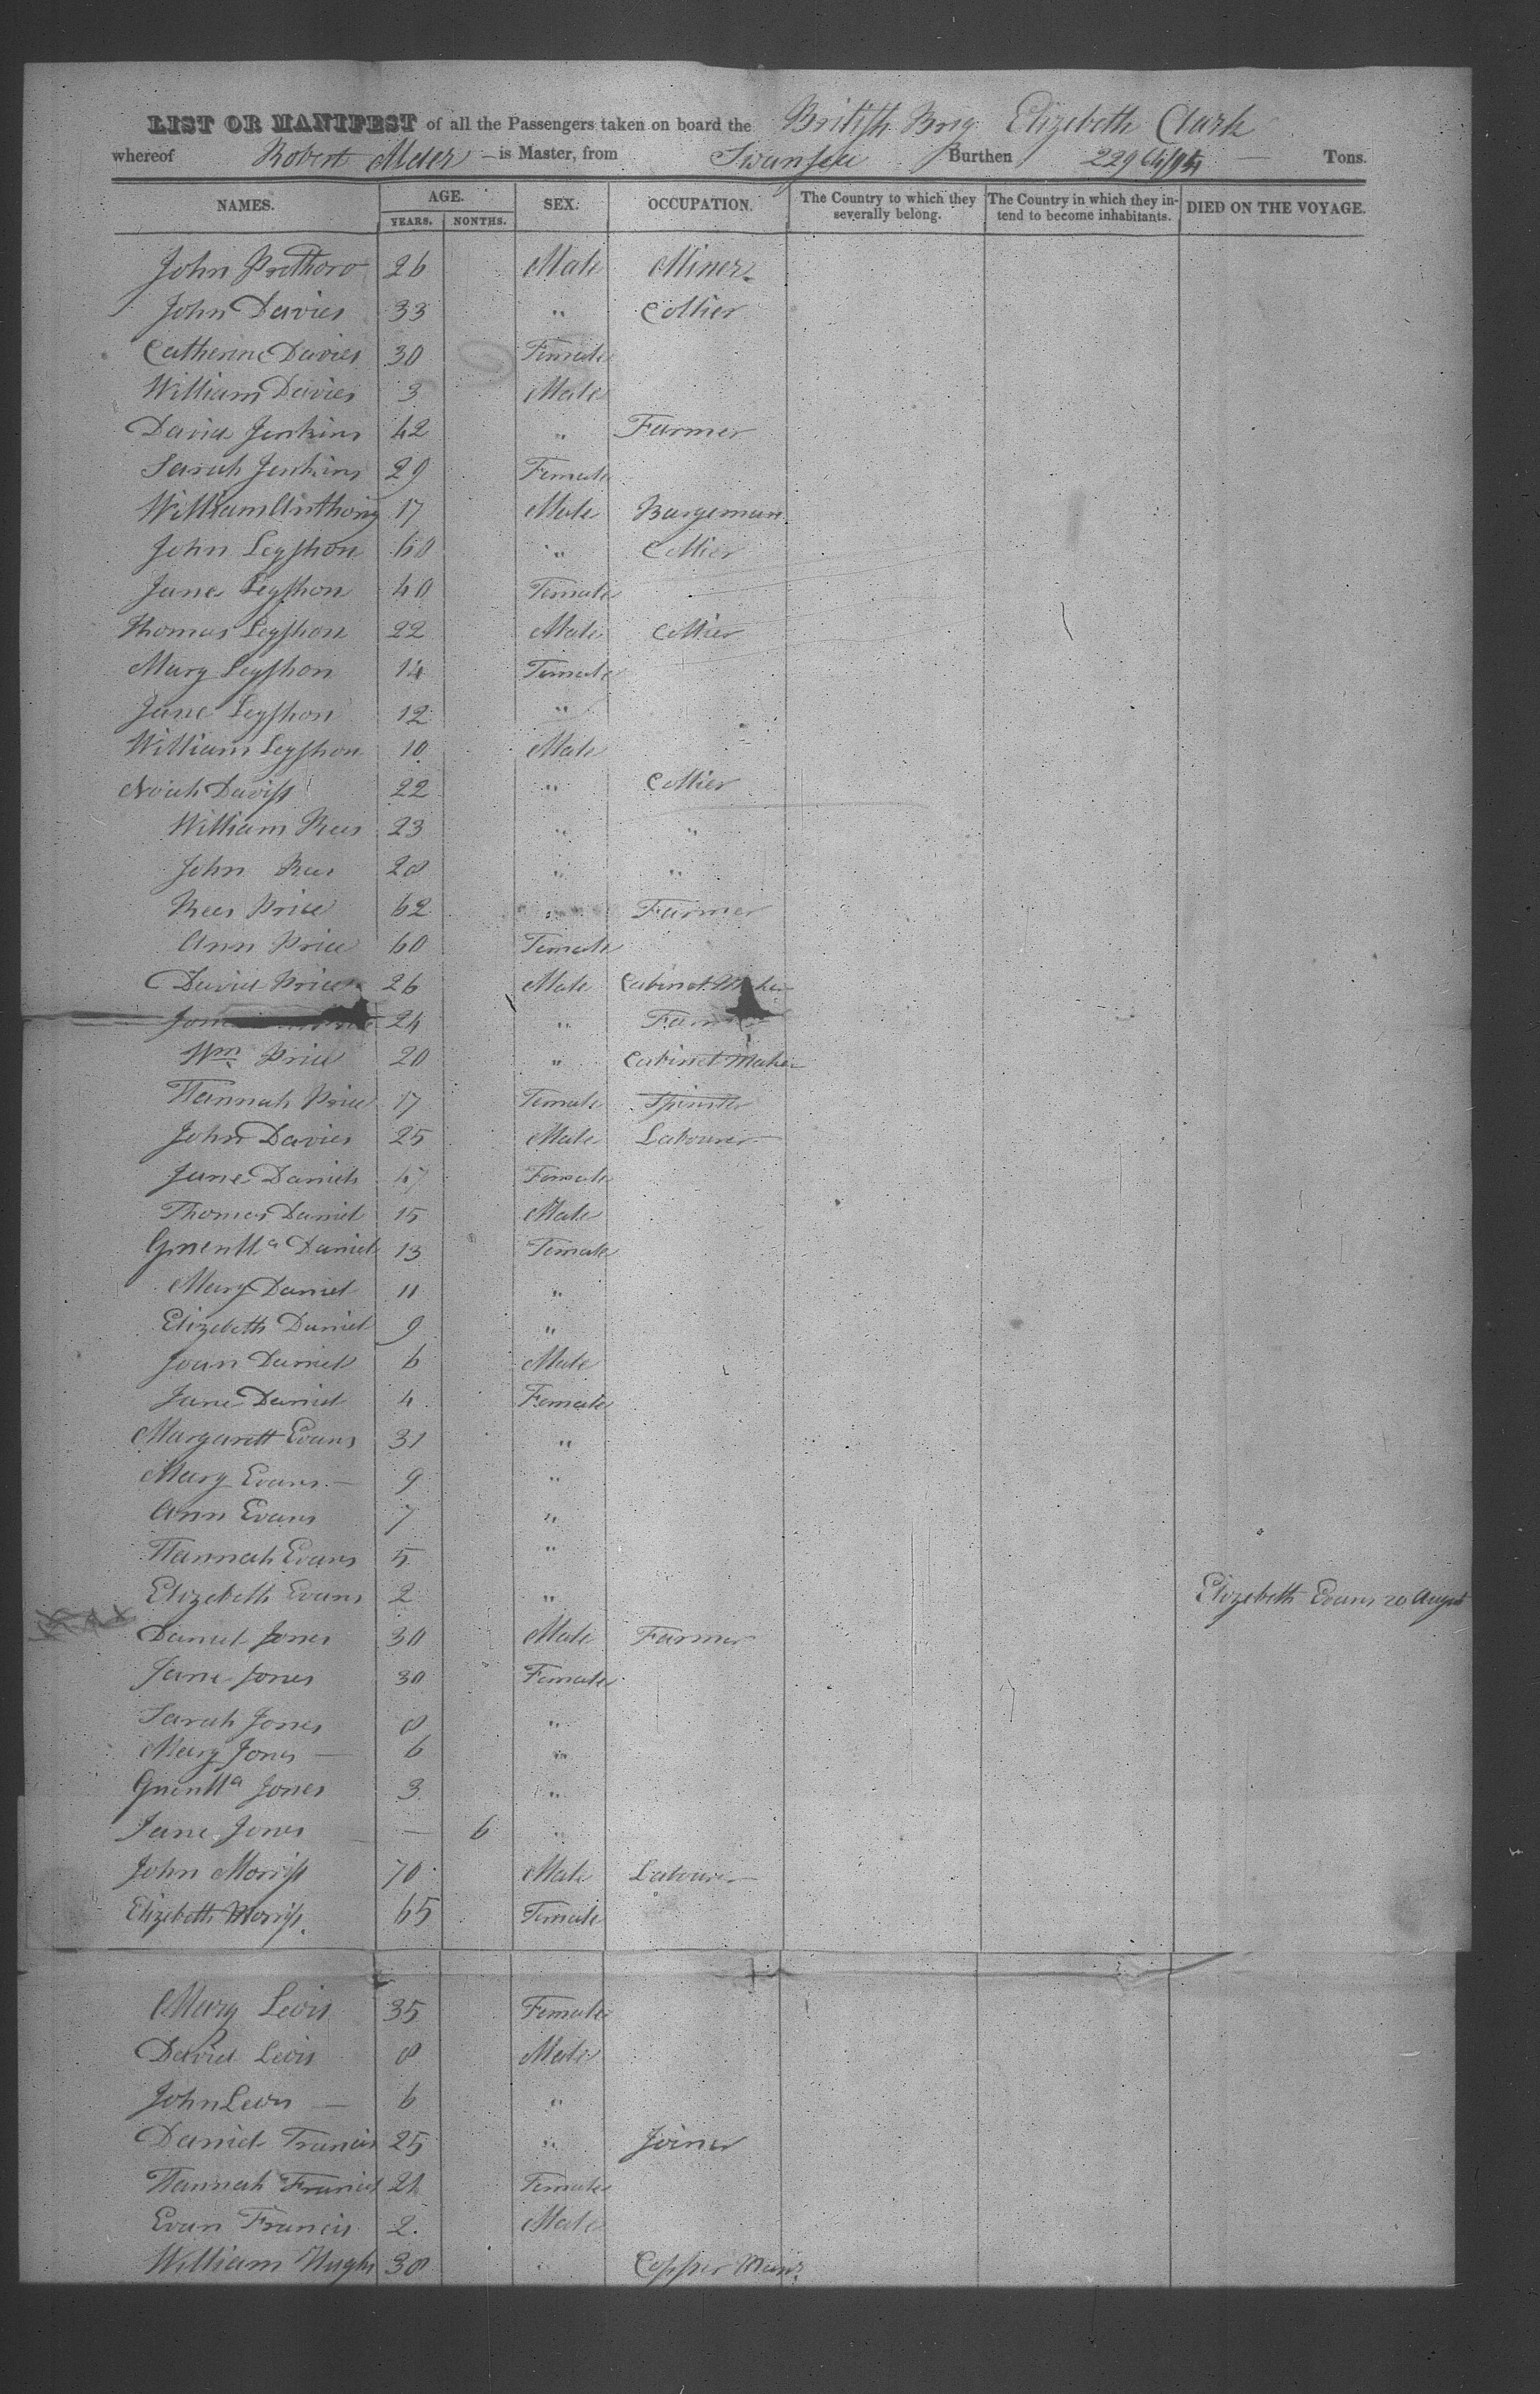 LIST OR MANIFEST of all the Passengers taken on board the British Brig Elizebeth Clark
whereof Robert Meder is Master, from Swansea Burthen 229 64/94 Tons.
NAMES. AGE. SEX. OCCUPATION. The Country to which they severally belong. The Country in which they intend to become inhabitants. DIED ON THE VOYAGE.
YEARS. MONTHS.
John Prothoro 26 Male Miner
John Davies 33 " Collier
Catherine Davies 30 Female
William Davies 3 Male
David Jenkins 42 " Farmer
Sarah Jenkins 29 Female
William Anthony 17 Male Bargeman
John Leyshon 60 " Collier
Jane Leyshon 40 Female
Thomas Leyshon 22 Male Collier
Mary Leyshon 14 Female
Jane Leyshon 12 "
William Leyshon 10 Male
Noah Daviss 22 " Collier
William Rees 23 " "
John Rees 28 " "
Rees Price 62 " Farmer
Ann Price 60 Female
David Price 26 Male Cabinet Maker
24 " Farmer
Wm Price 20 " Cabinet Maker
Hannah Price 17 Female Spinster
John Davies 25 Male Labourer
Jane Daniels 47 Female
Thomas Daniel 15 Male
Gwenlla Daniel 13 Female
Mary Daniel 11 "
Elizebeth Daniel 9 "
Joan Daniel 6 Male
Jane Daniel 4 Female
Margarett Evans 31 "
Mary Evans 9 "
Ann Evans 7 "
Hannah Evans 5 "
Elizebeth Evans 2 " Elizebeth Evans 20 August
Daniel Jones 30 Male Farmer
Jane Jones 30 Female
Sarah Jones 8 "
Mary Jones — 6 "
Gwenlla Jones 3 "
Jane Jones — 6 "
John Morriss 70 Male Labourer
Elizebeth Morriss 65 Female
Mary Lewis 35 Female
David Lewis 8 Male
John Lewis — 6 "
Daniel Francis 25 " Joiner
Hannah Francis 24 Female
Evan Francis 2 Male
William Hughs 38 " Copper Man